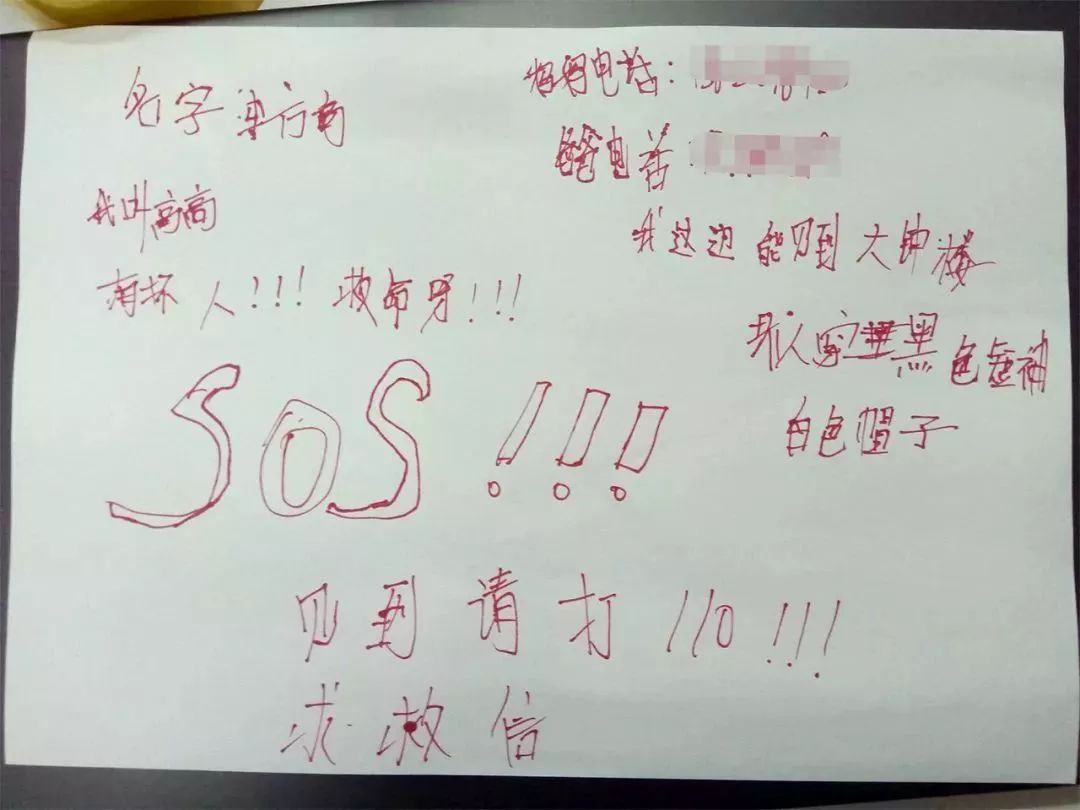 名字
我叫高高
有坏人!!! 救命呀!!!
SOS!!!
妈妈电话:
爸爸电话
我这边能见到大钟楼
坏人穿黑色短袖
白色帽子
见到请打110!!!
求救信